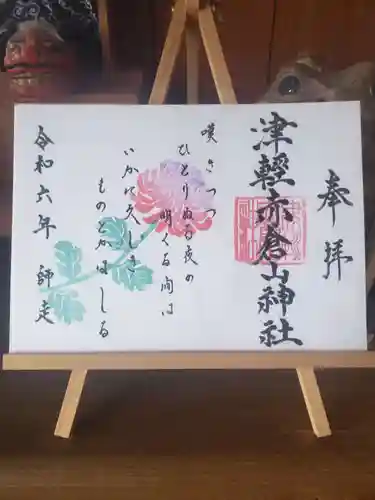 奉拝
津軽赤倉山神社
嘆きつつ
ひとりぬる夜の
明くる間は
いかに久しき
ものとかはしる
令和六年 師走